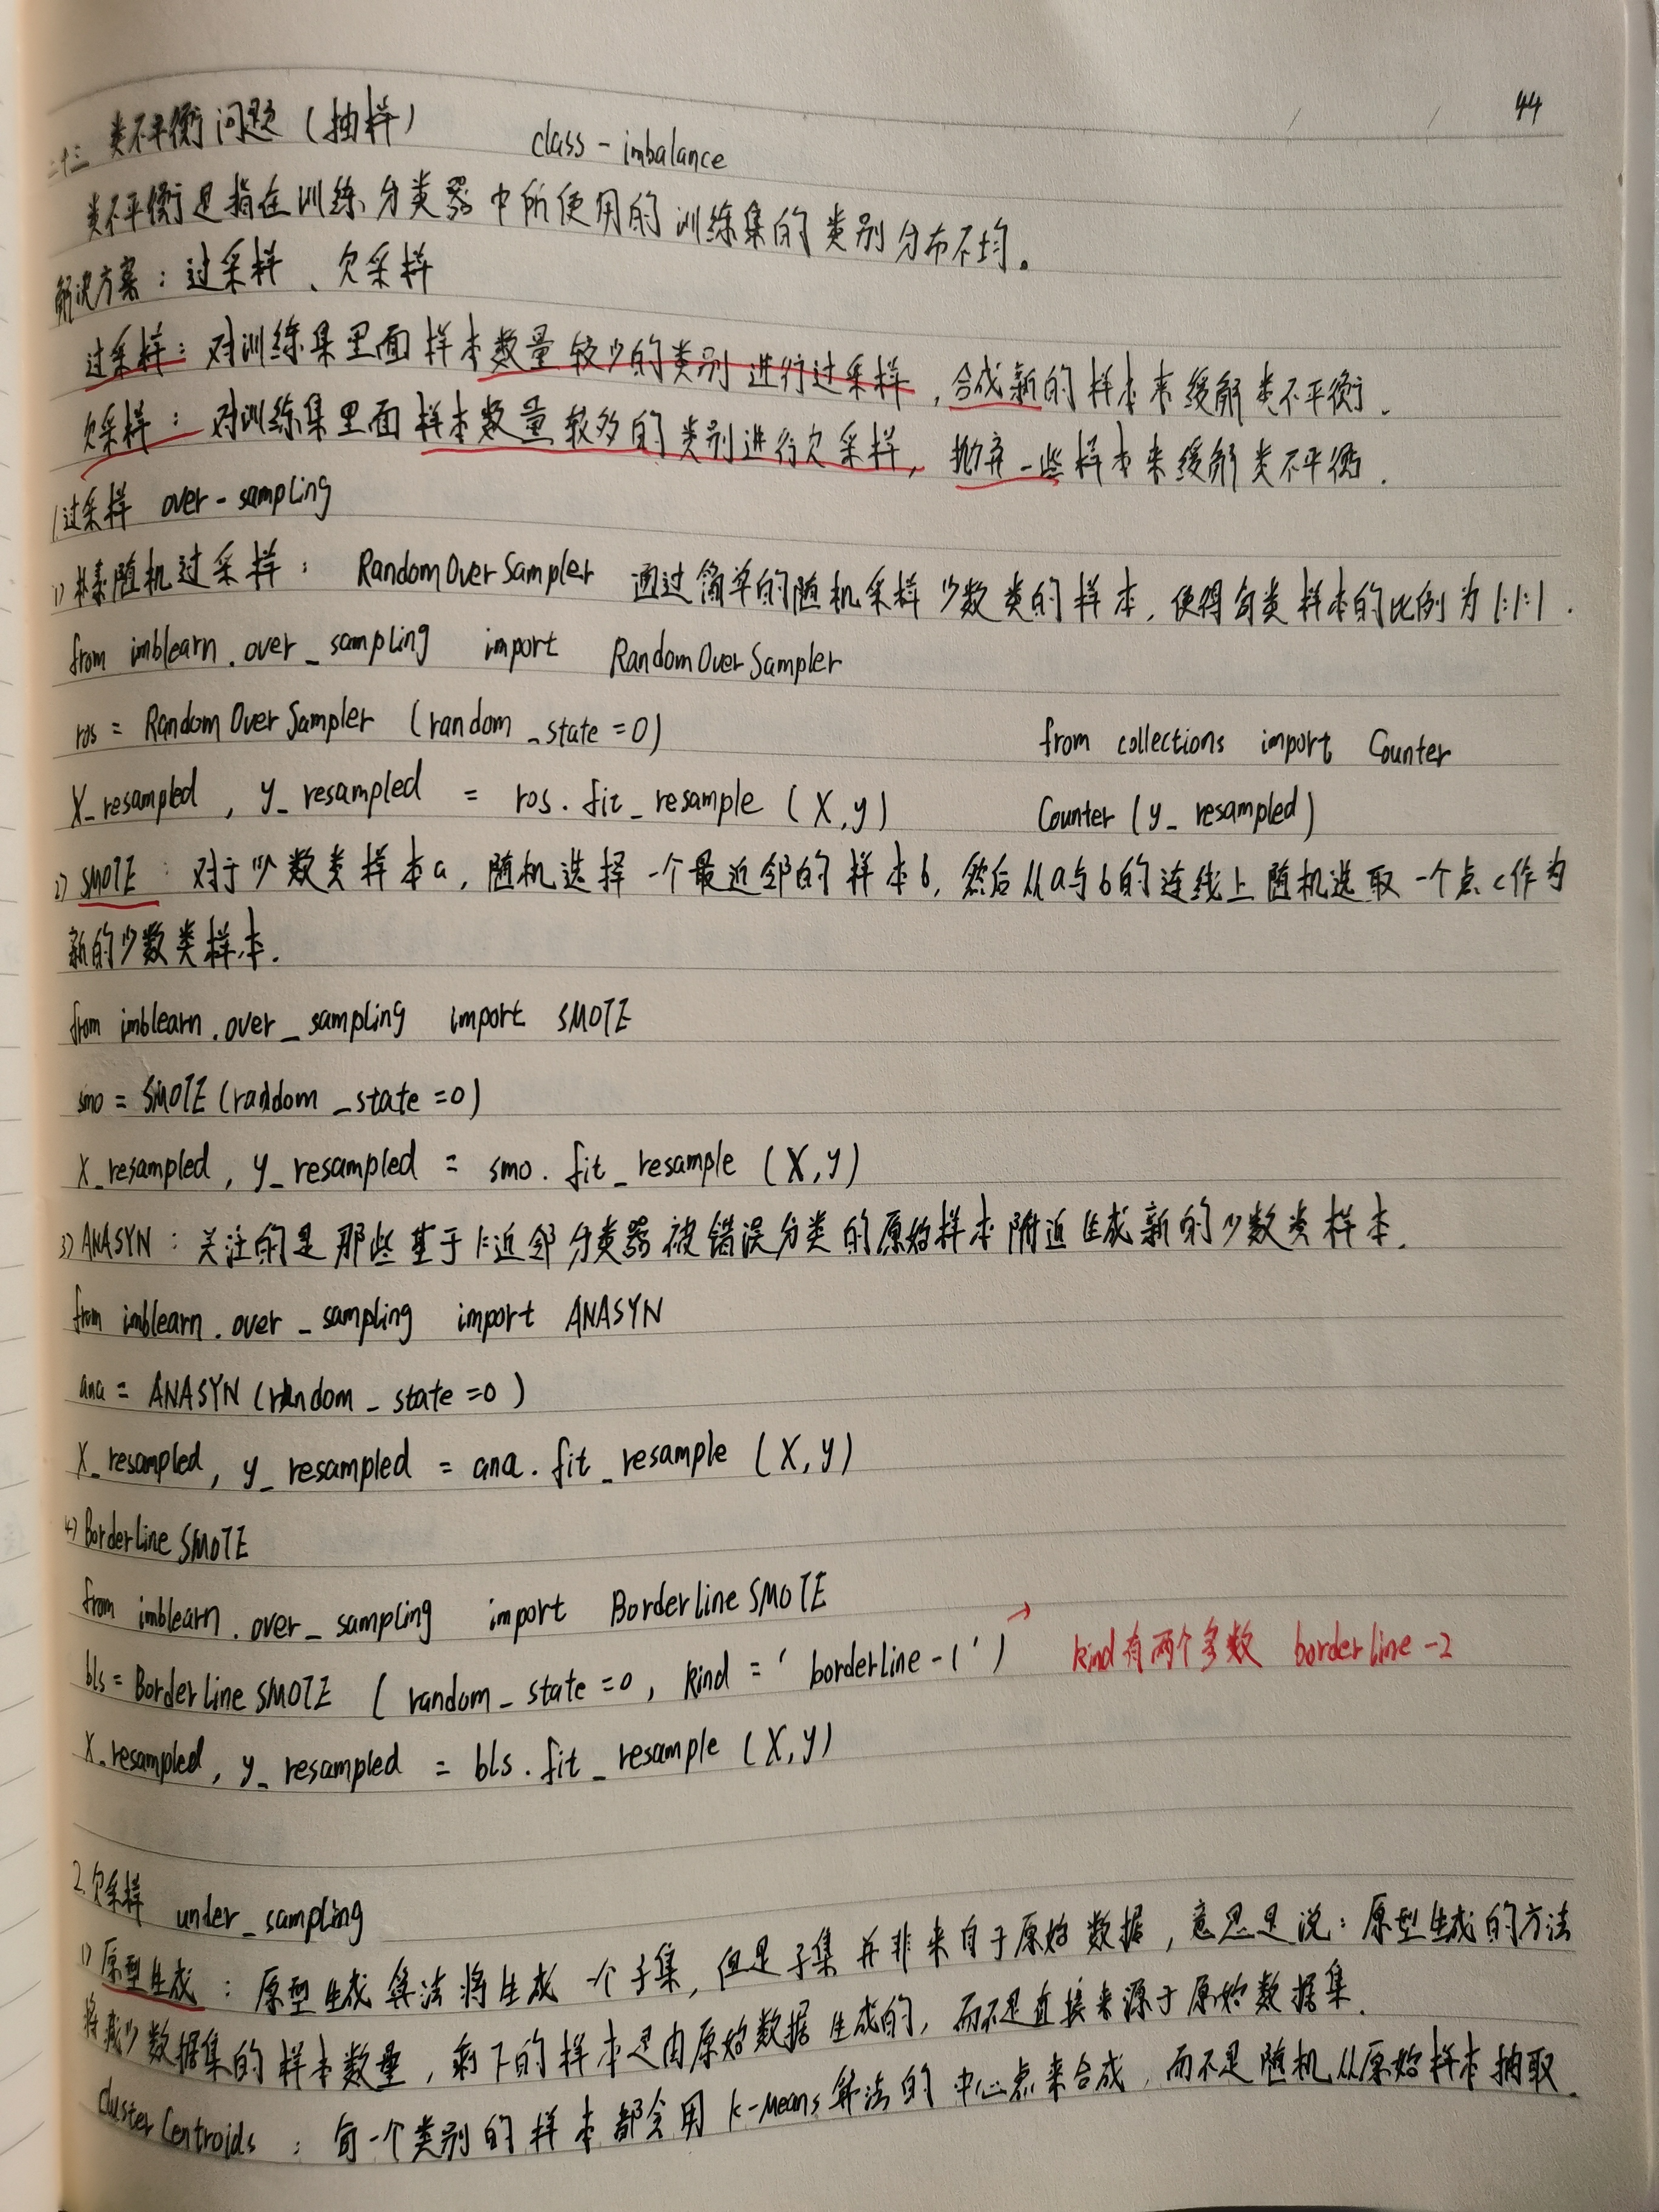 44
二十三 类不平衡问题（抽样） class-imbalance
类不平衡是指在训练分类器中所使用的训练集的类别分布不均。
解决方案：过采样、欠采样
过采样：对训练集里面样本数量较少的类别进行过采样，合成新的样本来缓解类不平衡.
欠采样：对训练集里面样本数量较多的类别进行欠采样，抛弃一些样本来缓解类不平衡.
1.过采样 over-sampling
1) 朴素随机过采样： RandomOverSampler 通过简单的随机采样少数类的样本，使得每类样本的比例为1:1:1.
from imblearn.over_sampling import RandomOverSampler
ros = RandomOverSampler (random_state=0) from collections import Counter
X_resampled, y_resampled = ros.fit_resample (X,y) Counter (y_resampled)
2) SMOTE：对于少数类样本a，随机选择一个最近邻的样本b，然后从a与b的连线上随机选取一个点c作为
新的少数类样本.
from imblearn.over_sampling import SMOTE
smo = SMOTE (random_state=0)
X_resampled, y_resampled = smo.fit_resample (X,y)
3) ANASYN：关注的是那些基于K近邻分类器被错误分类的原始样本附近生成新的少数类样本.
from imblearn.over_sampling import ANASYN
ana = ANASYN (random_state=0)
X_resampled, y_resampled = ana.fit_resample (X,y)
4) BorderlineSMOTE
from imblearn.over_sampling import BorderlineSMOTE
bls = BorderlineSMOTE (random_state=0, kind='borderline-1') → kind有两个多数 borderline-2
X_resampled, y_resampled = bls.fit_resample (X,y)
2.欠采样 under_sampling
1) 原型生成：原型生成算法将生成一个子集，但是子集并非来自于原始数据，意思是说：原型生成的方法
将减少数据集的样本数量，剩下的样本是由原始数据生成的，而不是直接来源于原始数据集.
ClusterCentroids：每一个类别的样本都会用K-Means算法的中心点来合成，而不是随机从原始样本抽取.